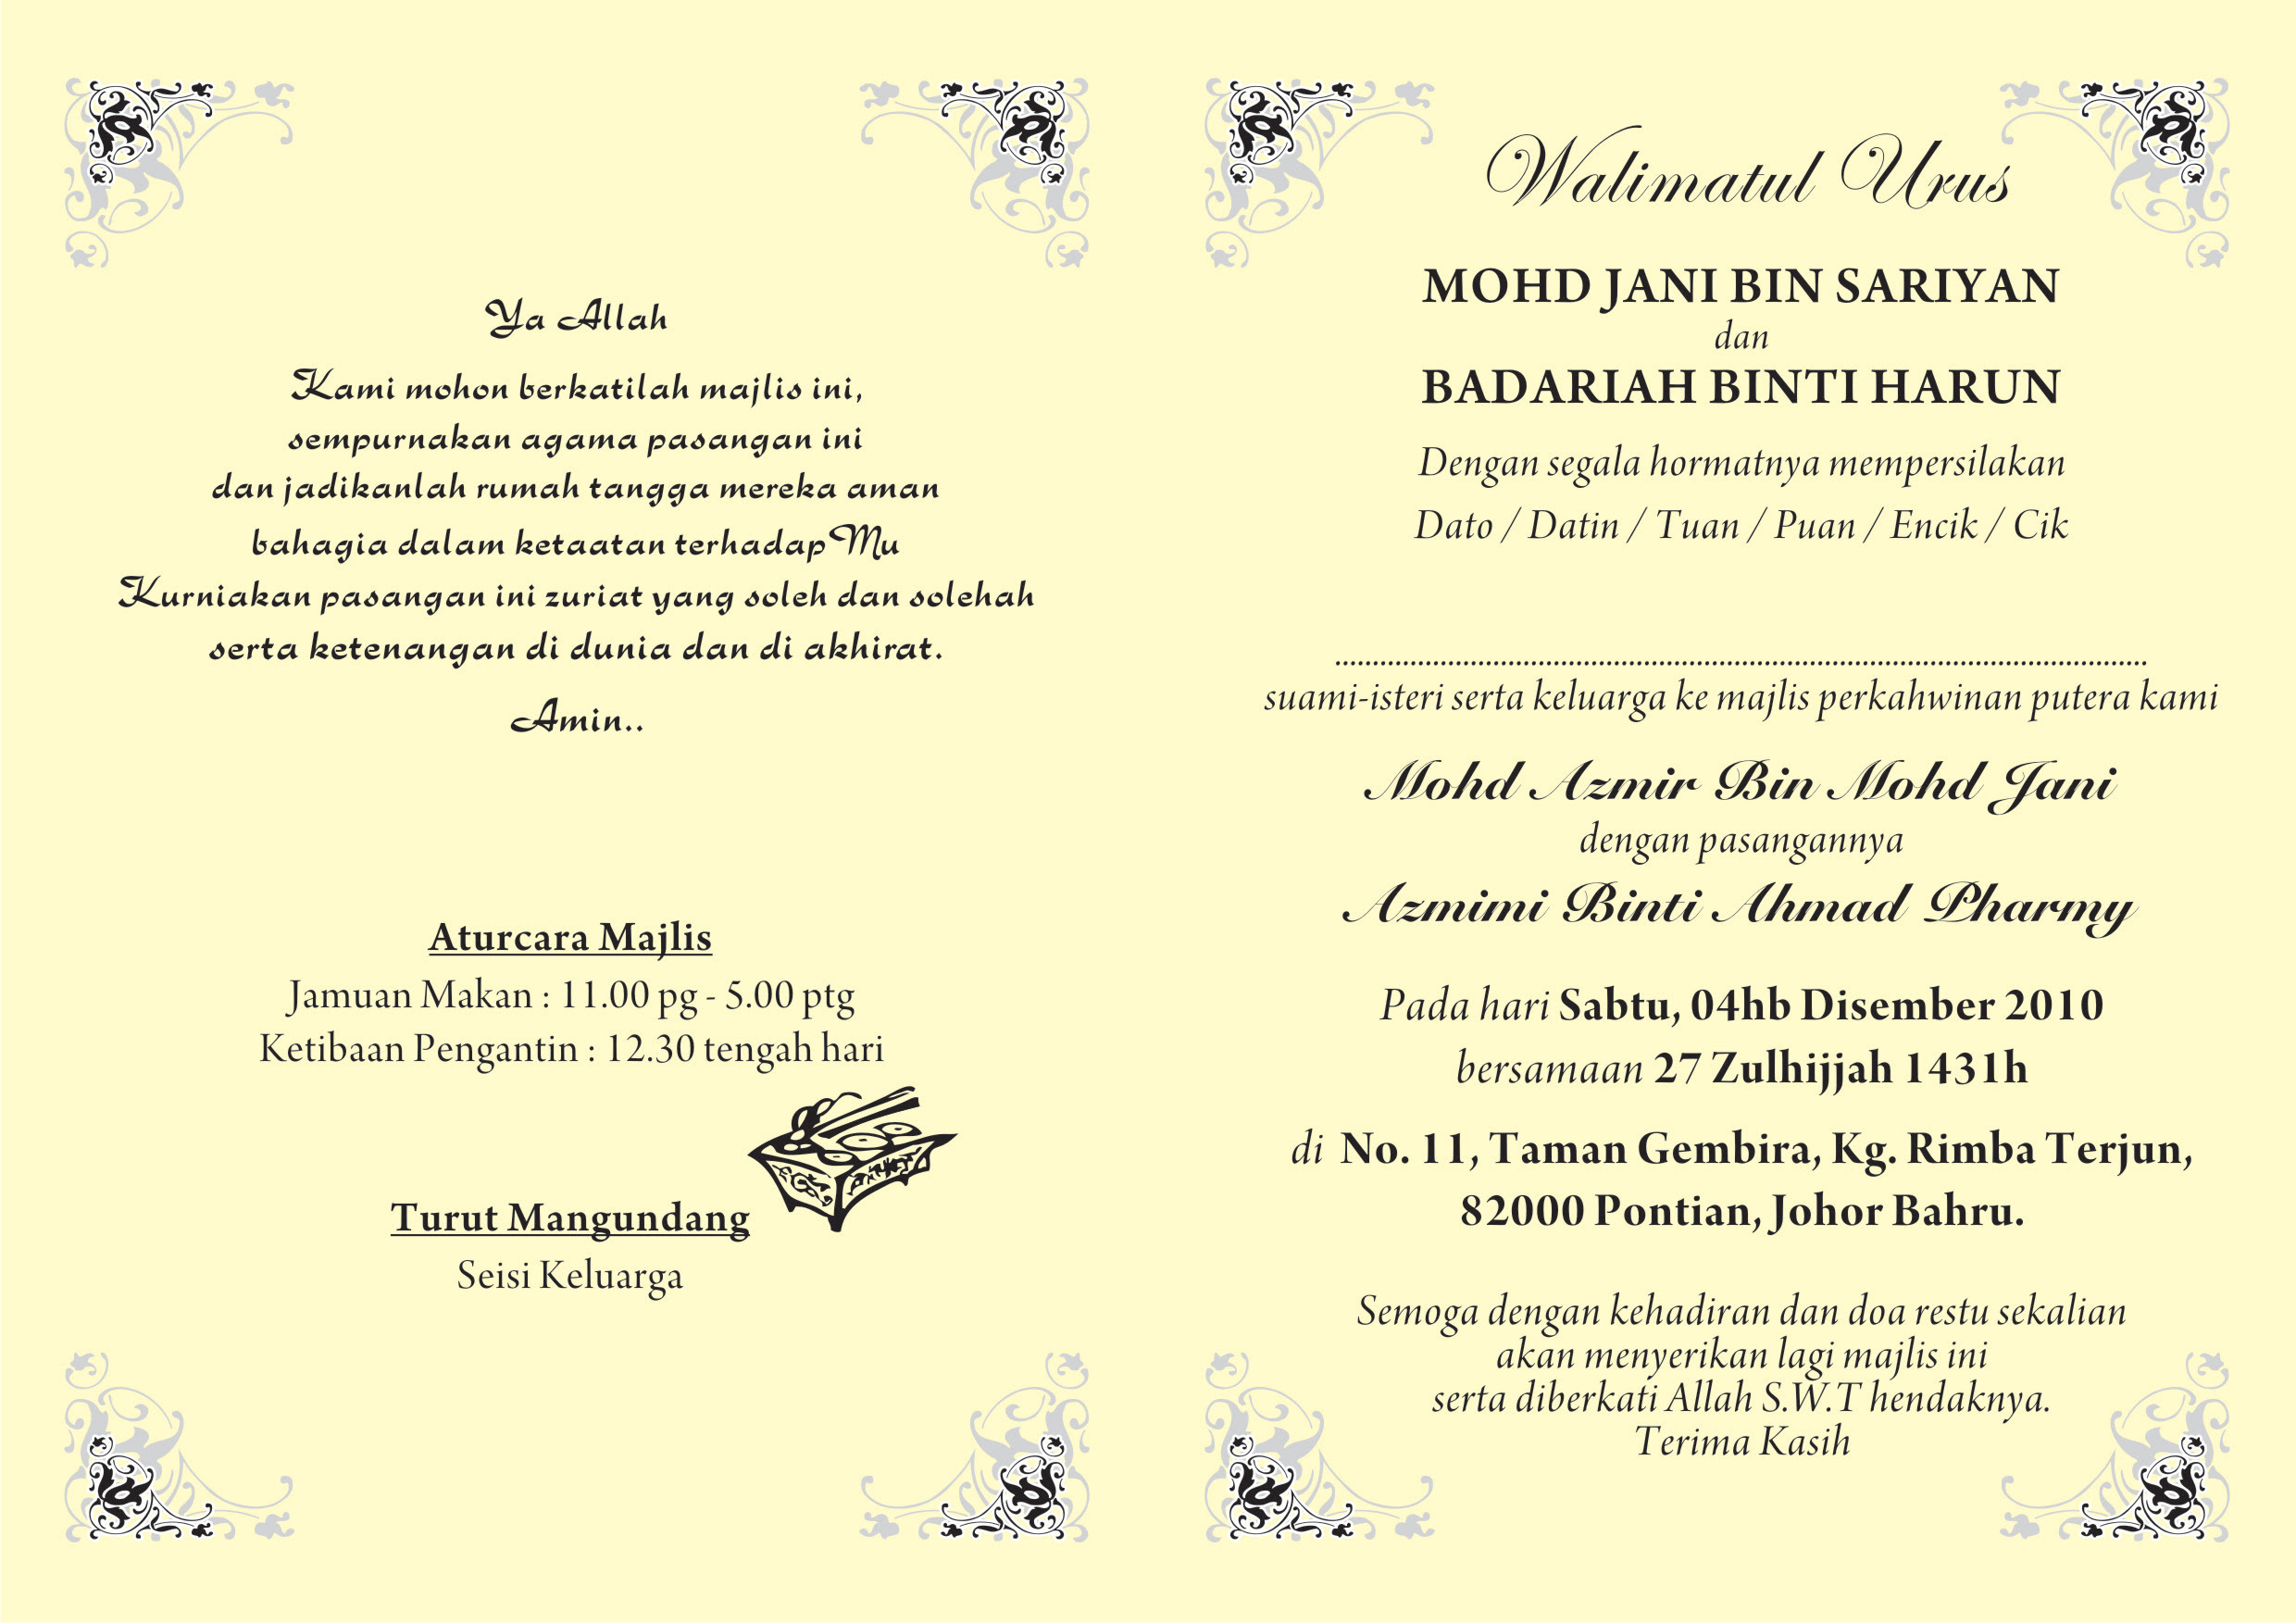 Ya Allah
Kami mohon berkatilah majlis ini,
sempurnakan agama pasangan ini
dan jadikanlah rumah tangga mereka aman
bahagia dalam ketaatan terhadapMu
Kurniakan pasangan ini zuriat yang soleh dan solehah
serta ketenangan di dunia dan di akhirat.
Amin..
Aturcara Majlis
Jamuan Makan : 11.00 pg - 5.00 ptg
Ketibaan Pengantin : 12.30 tengah hari
Turut Mangundang
Seisi Keluarga
Walimatul Urus
MOHD JANI BIN SARIYAN
dan
BADARIAH BINTI HARUN
Dengan segala hormatnya mempersilakan
Dato / Datin / Tuan / Puan / Encik / Cik
............................................................................................................
suami-isteri serta keluarga ke majlis perkahwinan putera kami
Mohd Azmir Bin Mohd Jani
dengan pasangannya
Azmimi Binti Ahmad Pharmy
Pada hari Sabtu, 04hb Disember 2010
bersamaan 27 Zulhijjah 1431h
di No. 11, Taman Gembira, Kg. Rimba Terjun,
82000 Pontian, Johor Bahru.
Semoga dengan kehadiran dan doa restu sekalian
akan menyerikan lagi majlis ini
serta diberkati Allah S.W.T hendaknya.
Terima Kasih